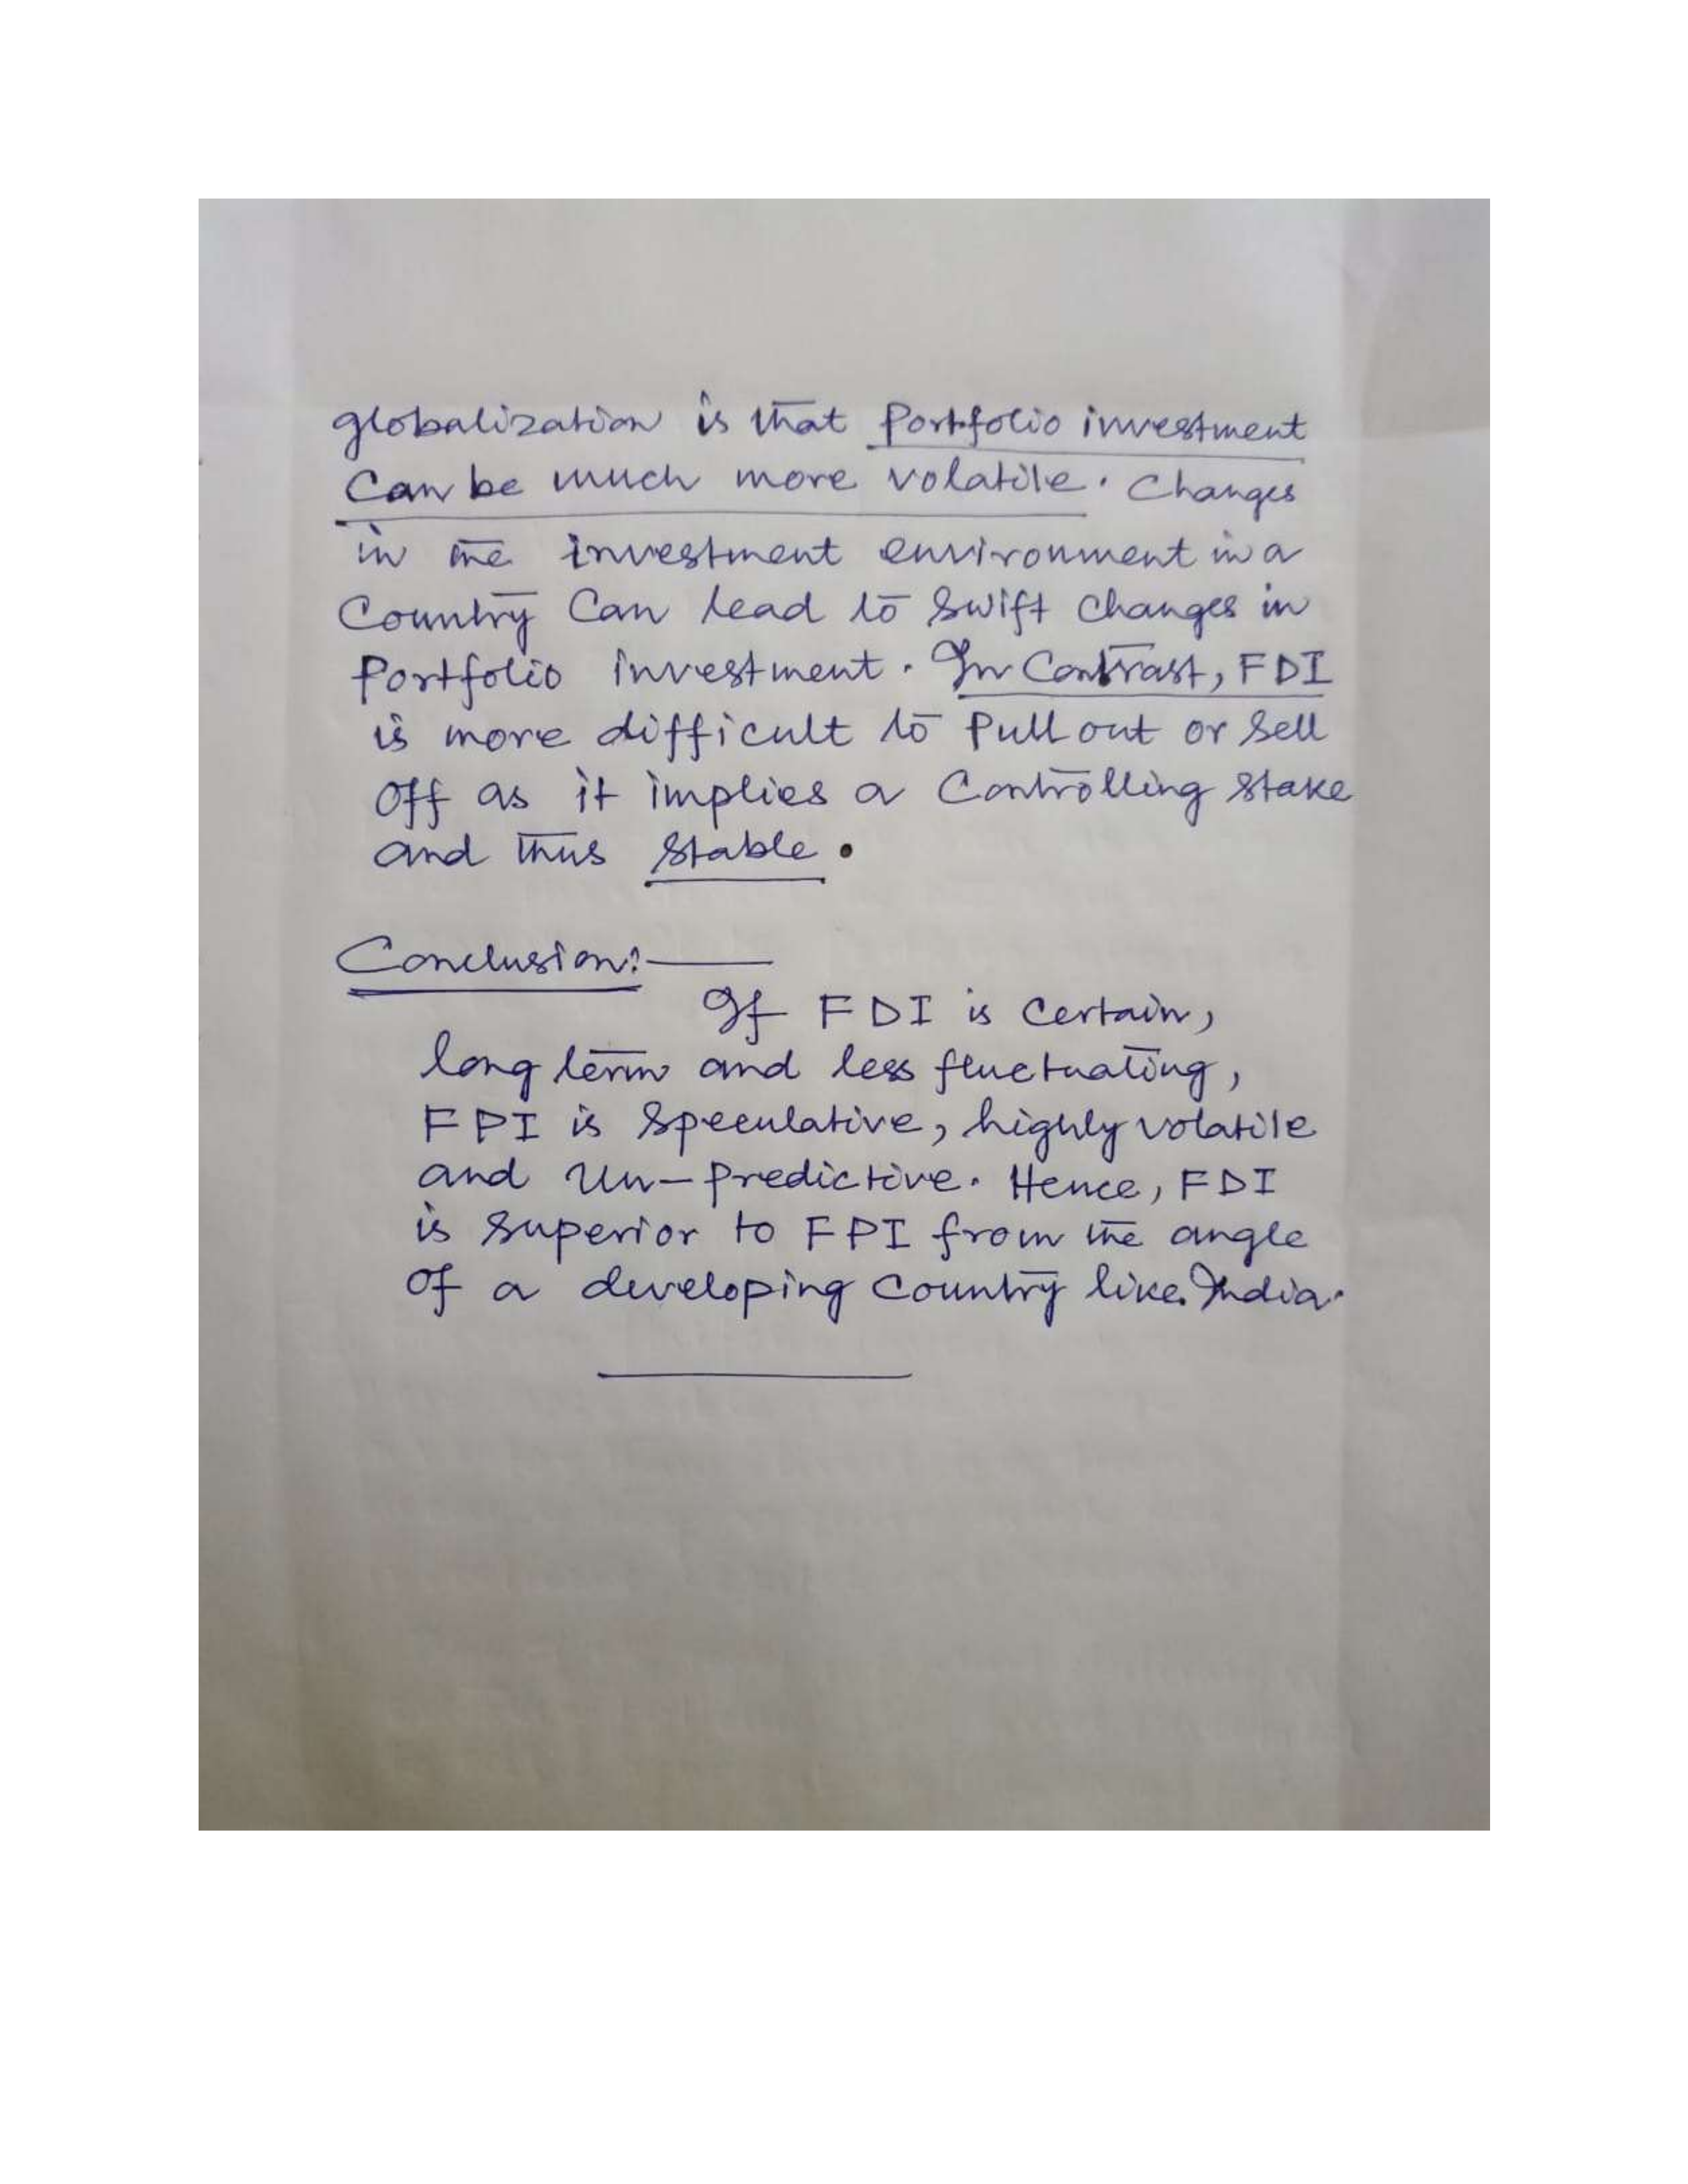 globalization is that Portfolio investment
Can be much more volatile. Changes
in the investment environment in a
Country Can lead to Swift Changes in
Portfolio investment. In Contrast, FDI
is more difficult to Pull out or Sell
Off as it implies a Controlling Stake
and thus Stable.
Conclusion:-
If FDI is Certain,
long term and less fluctuating,
FPI is Speculative, highly volatile
and Un-predictive. Hence, FDI
is Superior to FPI from the angle
Of a developing Country like India.